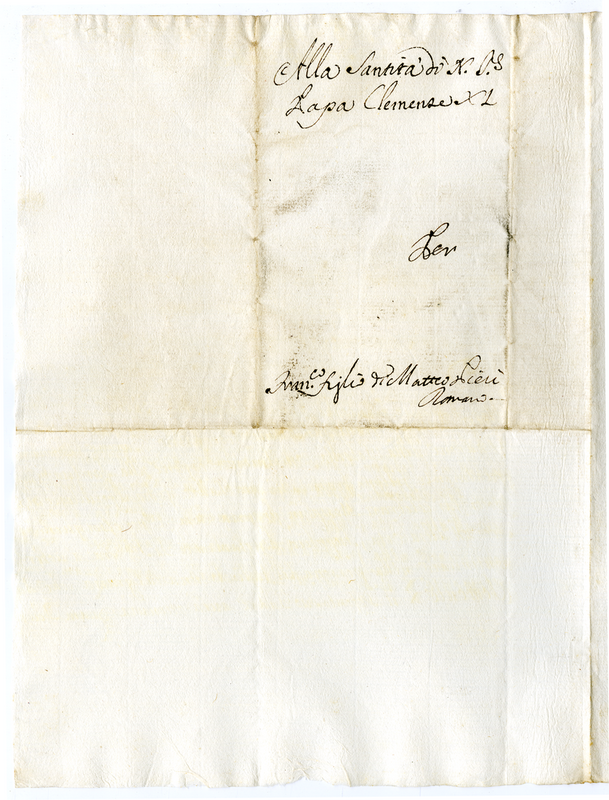 Alla Santità di N. S.re
Papa Clemente XI
Per
Fran.co figlio di Matteo Pieri
Romano.